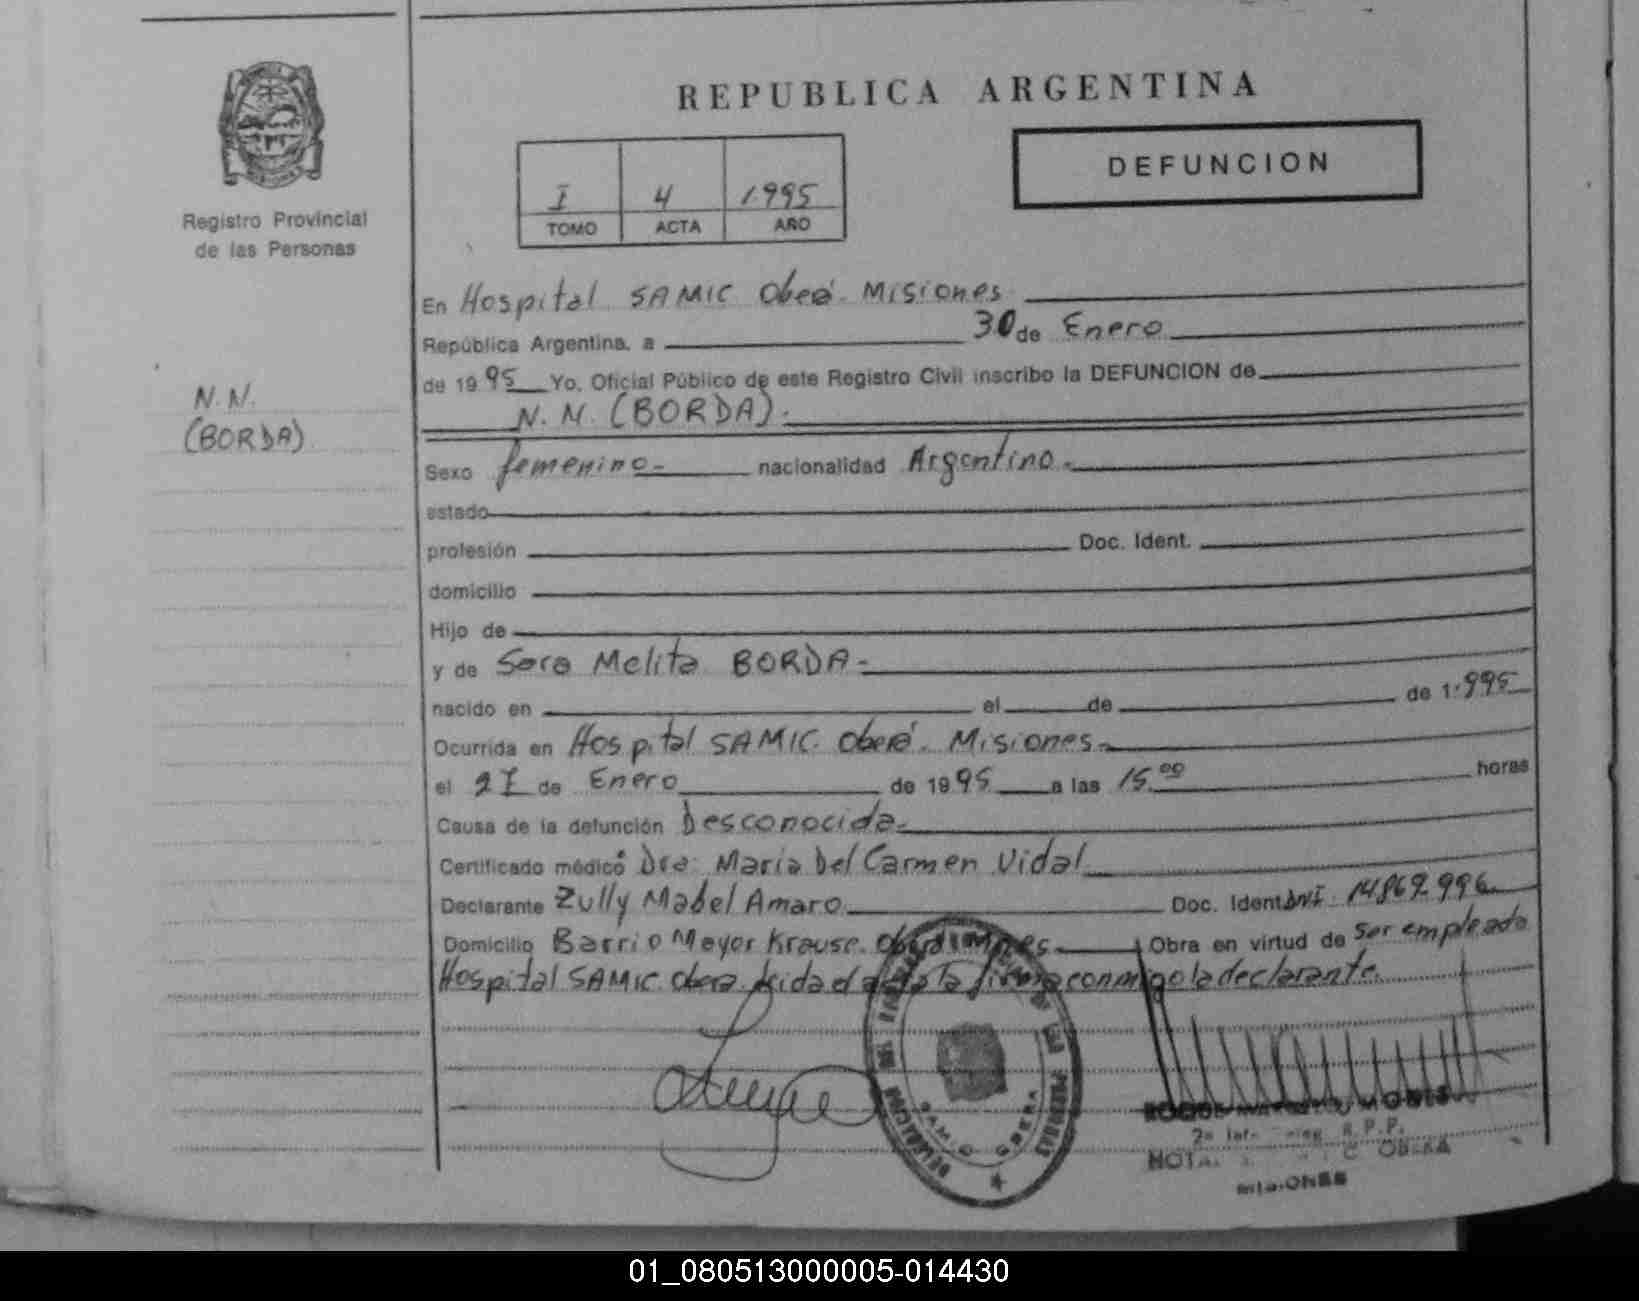 REPUBLICA ARGENTINA
DEFUNCION
I 4 1.995
TOMO ACTA AÑO
Registro Provincial
de las Personas
N.N.
(BORDA)
En Hospital SAMIC Oberá. Misiones
República Argentina, a 30 de Enero
de 1995 Yo, Oficial Público de este Registro Civil inscribo la DEFUNCION de
N. N. (BORDA).
Sexo femenino- nacionalidad Argentino.
estado
profesión Doc. Ident.
domicilio
Hijo de
y de Sara Melita BORDA-
nacido en el de de 1.995
Ocurrida en Hospital SAMIC. Oberá. Misiones-
el 27 de Enero de 1995 a las 15.00 horas
Causa de la defunción Desconocida-
Certificado médico Dra: Maria Del Carmen Vidal
Declarante Zully Mabel Amaro Doc. Ident. DNI. 14869.996
Domicilio Barrio Meyor Krause. Oberá Obra en virtud de Ser empleado
Hospital SAMIC. Obera. conmigo la declarante.
DELEGACION
S.A.M.I.C. OBERA
R.P.P.
OBERA
01_080513000005-014430